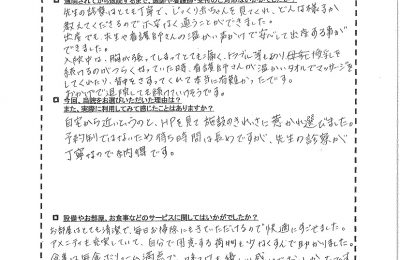 先生の診察はとても丁寧で、じっくり赤ちゃんを見てくれ、どんな様子か
教えてくださるので不安なく通うことができました。
出産でも、先生や看護師さんの温かい声かけで安心して出産する事が
できました。
入院中は、胸が張ってしまってとても痛く、トラブル等もあり母乳授乳を
続けるのがつらくなっていた時、看護師さんが温かいタオルでマッサージを
してくれたり、背中をさすってくれて本当に有難かったです。
おかげで退院しても続けていけそうです。
今回、当院をお選びいただいた理由は?
また、実際に利用してみて感じたことはありますか?
自宅から近いというのと、HPを見て施設のきれいさに惹かれ選びました。
予約制ではないため待ち時間は長めですが、先生の診察が
丁寧なので納得です。
設備やお部屋、お食事などのサービスに関してはいかがでしたか?
お部屋はとても清潔で、毎日お掃除にもきていただけるので快適にすごせました。
アメニティも充実していて、自分で用意する荷物も少なくすんで助かりました。